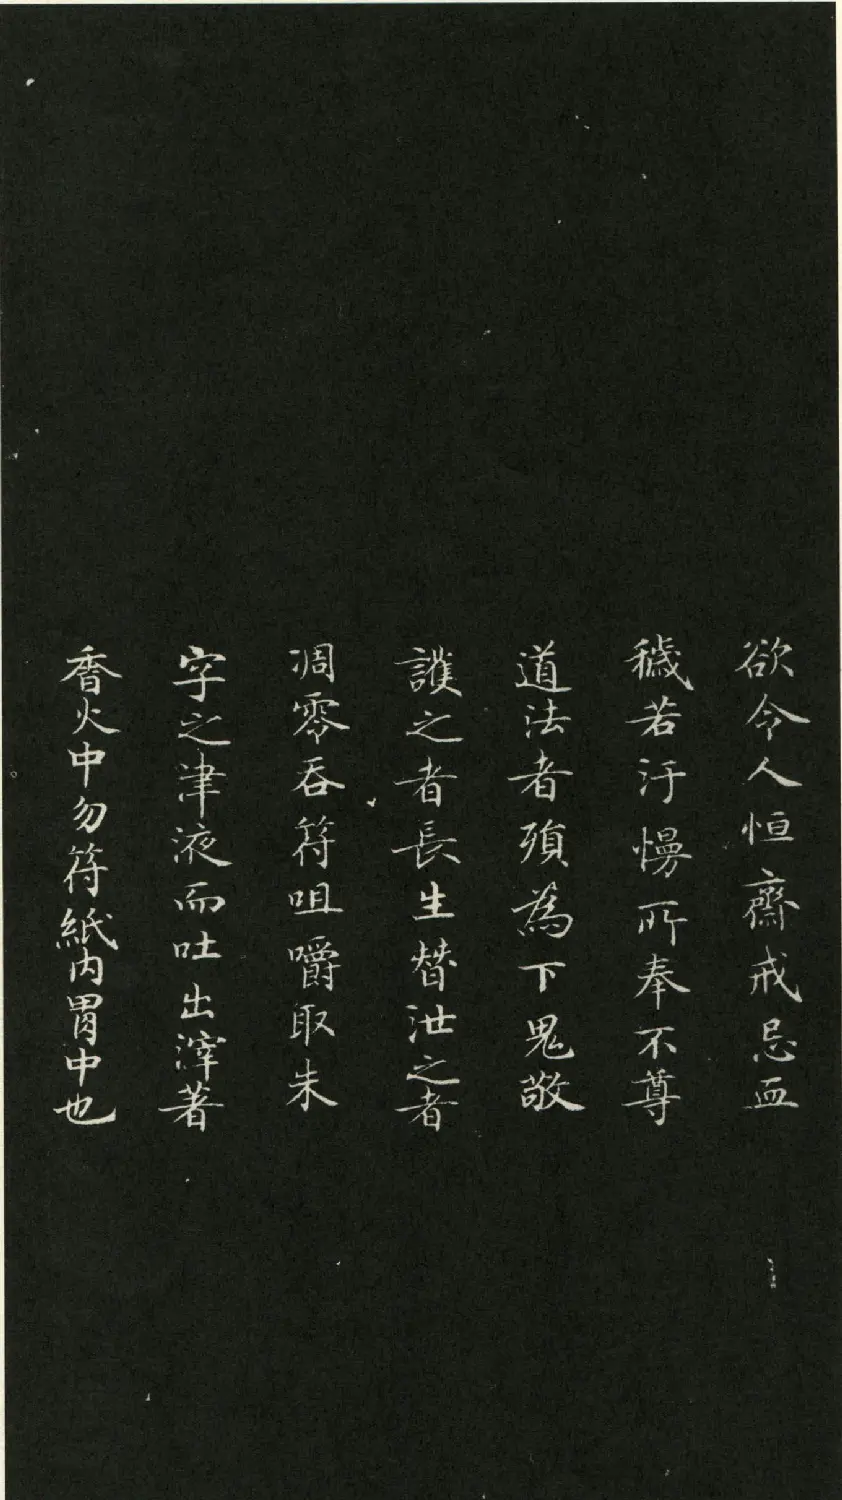 欲令人恒齋戒忌血
穢若汙慢所奉不尊
道法者殞為下鬼敬
護之者長生替泄之者
凋零吞符咀嚼取朱
字之津液而吐出滓著
香火中勿符紙内胃中也